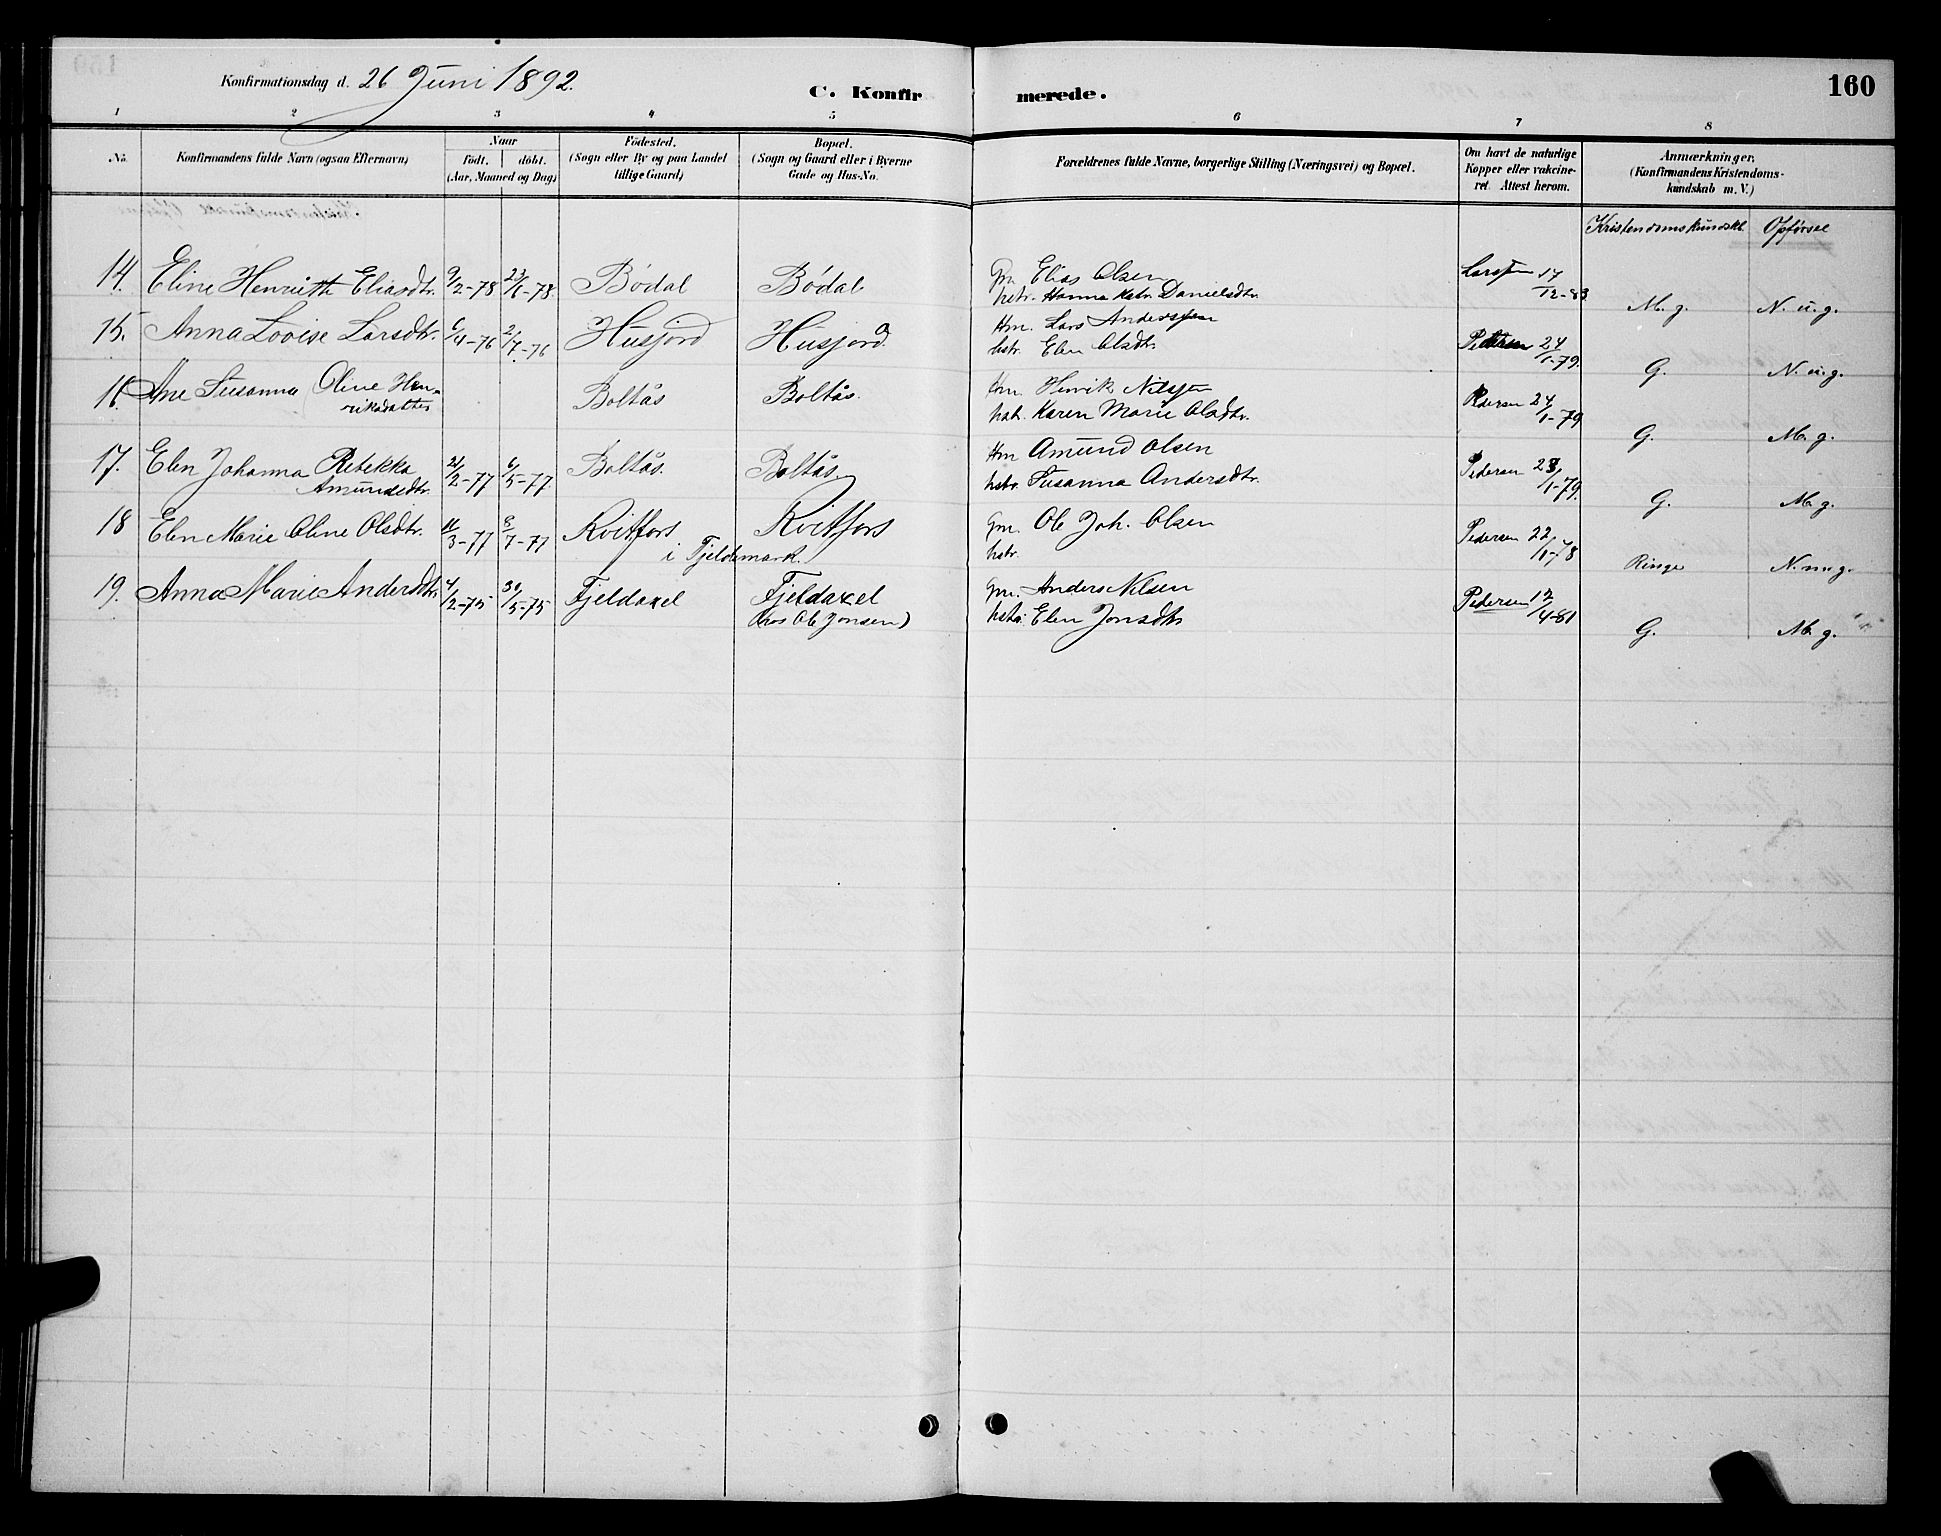 Konfirmationsdag d. 26 Juni 1892.
C. Konfirmerede.
160
1 2 3 4 5 6 7 8
No. Konfirmandens fulde Navn (ogsaa Efternavn) Naar født. døbt. (Aar, Maaned og Dag) Fødested. (Sogn eller By og paa Landet tillige Gaard) Bopæl. (Sogn og Gaard eller i Byerne Gade og Hus-No. Forældrenes fulde Navne, borgerlige Stilling (Næringsvei) og Bopæl. Om havt de naturlige Kopper eller vakcineret Attest herom. Anmærkninger. (Konfirmandens Kristendomskundskab m. V.)
Kristendomskundskb. Opførsel
14. Eline Henriette Eliasdtr. 9/2-78 23/6-78. Bødal Bødal Gm. Elias Olsen Larssen 17/12-83
hstr. Hanna Katr. Danielsdtr. M. g. N. u. g.
15. Anna Lovise Larsdtr. 6/4-76 2/7-76 Husjord Husjord. Hm. Lars Anderssen
hstr. Elen Olsdtr. Pedersen 24/1-79. G. N. u. g.
16. Ane Susanna Oline Hen-
riksdatter Boltås Boltås. Hm. Henrik Nilssen
hstr. Karen Marie Olsdtr. Pedersen 24/1-79 G. M. g.
17. Elen Johanna Rebekka
Amundsdtr. 21/2-77 6/5-77. Boltås. Boltås. Hm Amund Olsen
hstr. Susanna Andersdtr. Pedersen 23/1-79. G. M. g.
18 Elen Marie Oline Olsdtr. 11/3-77 8/7-77 Kvitfors Kvitfors
i Fjeldemark. Gm. Ole Joh. Olsen
hstr. Pedersen 22/11-78 Ringe N. m. g.
19. Anna Marie Andersdtr. 4/2-75 30/5-75 Fjeldaxel Fjeldaxel
(hos Ole Jonsen) Gm. Anders Nilsen
hstr. Elen Jonsdtr Pedersen 12/4-81 G. M. g.